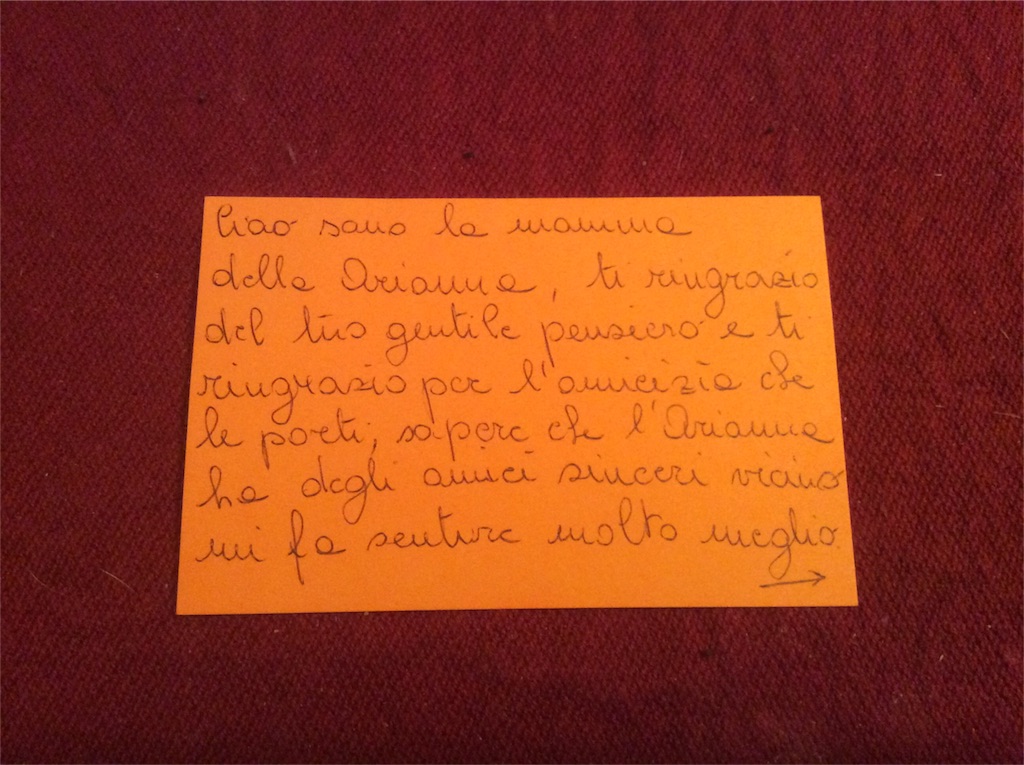 Ciao sono la mamma
della Arianna, ti ringrazio
del tuo gentile pensiero e ti
ringrazio per l'amicizia che
le porti, sapere che l'Arianna
ha degli amici sinceri vicino
mi fa sentire molto meglio.
→